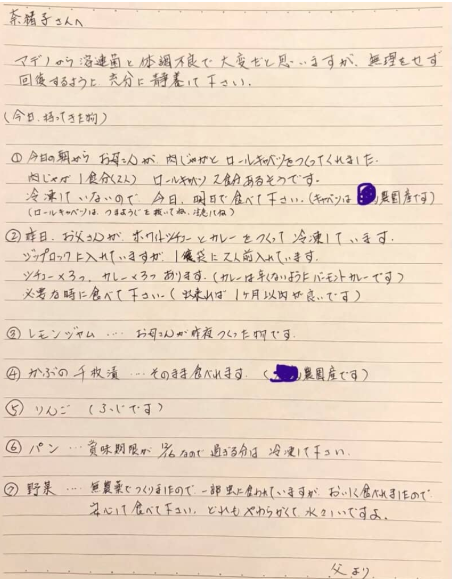 菜緒子さんへ
マデノから溶連菌と体調不良で大変だと思いますが、無理をせず
回復するように充分に静養して下さい。
(今日、持ってきた物)
① 今日の朝からお母さんが肉じゃがとロールキャベツをつくってくれました。
肉じゃが1食分(2人) ロールキャベツ2食分あるそうです。
冷凍していないので今日、明日で食べて下さい。(キャベツは農園産です)
(ロールキャベツは、つまようじを抜いてね、注意してね)
② 昨日、お父さんがホワイトシチューとカレーをつくって冷凍しています。
ジップロックに入れていますが1袋に2人前入れています。
シチュー×3つ、カレー×3つあります。(カレーは辛くないようにバーモントカレーです)
必要な時に食べて下さい。(出来れば1ヶ月以内が良いです)
③ レモンジャム…お母さんが昨夜つくった物です。
④ かぶの千枚漬…そのまま食べれます。(農園産です)
⑤ りんご (ふじです)
⑥ パン…賞味期限が12/6なので過ぎる分は冷凍して下さい。
⑦ 野菜…無農薬でつくりましたので一部虫に食われていますが、おいしく食べれましたので
安心して食べて下さい。どれもやわらかくて水々しいですよ。
父より